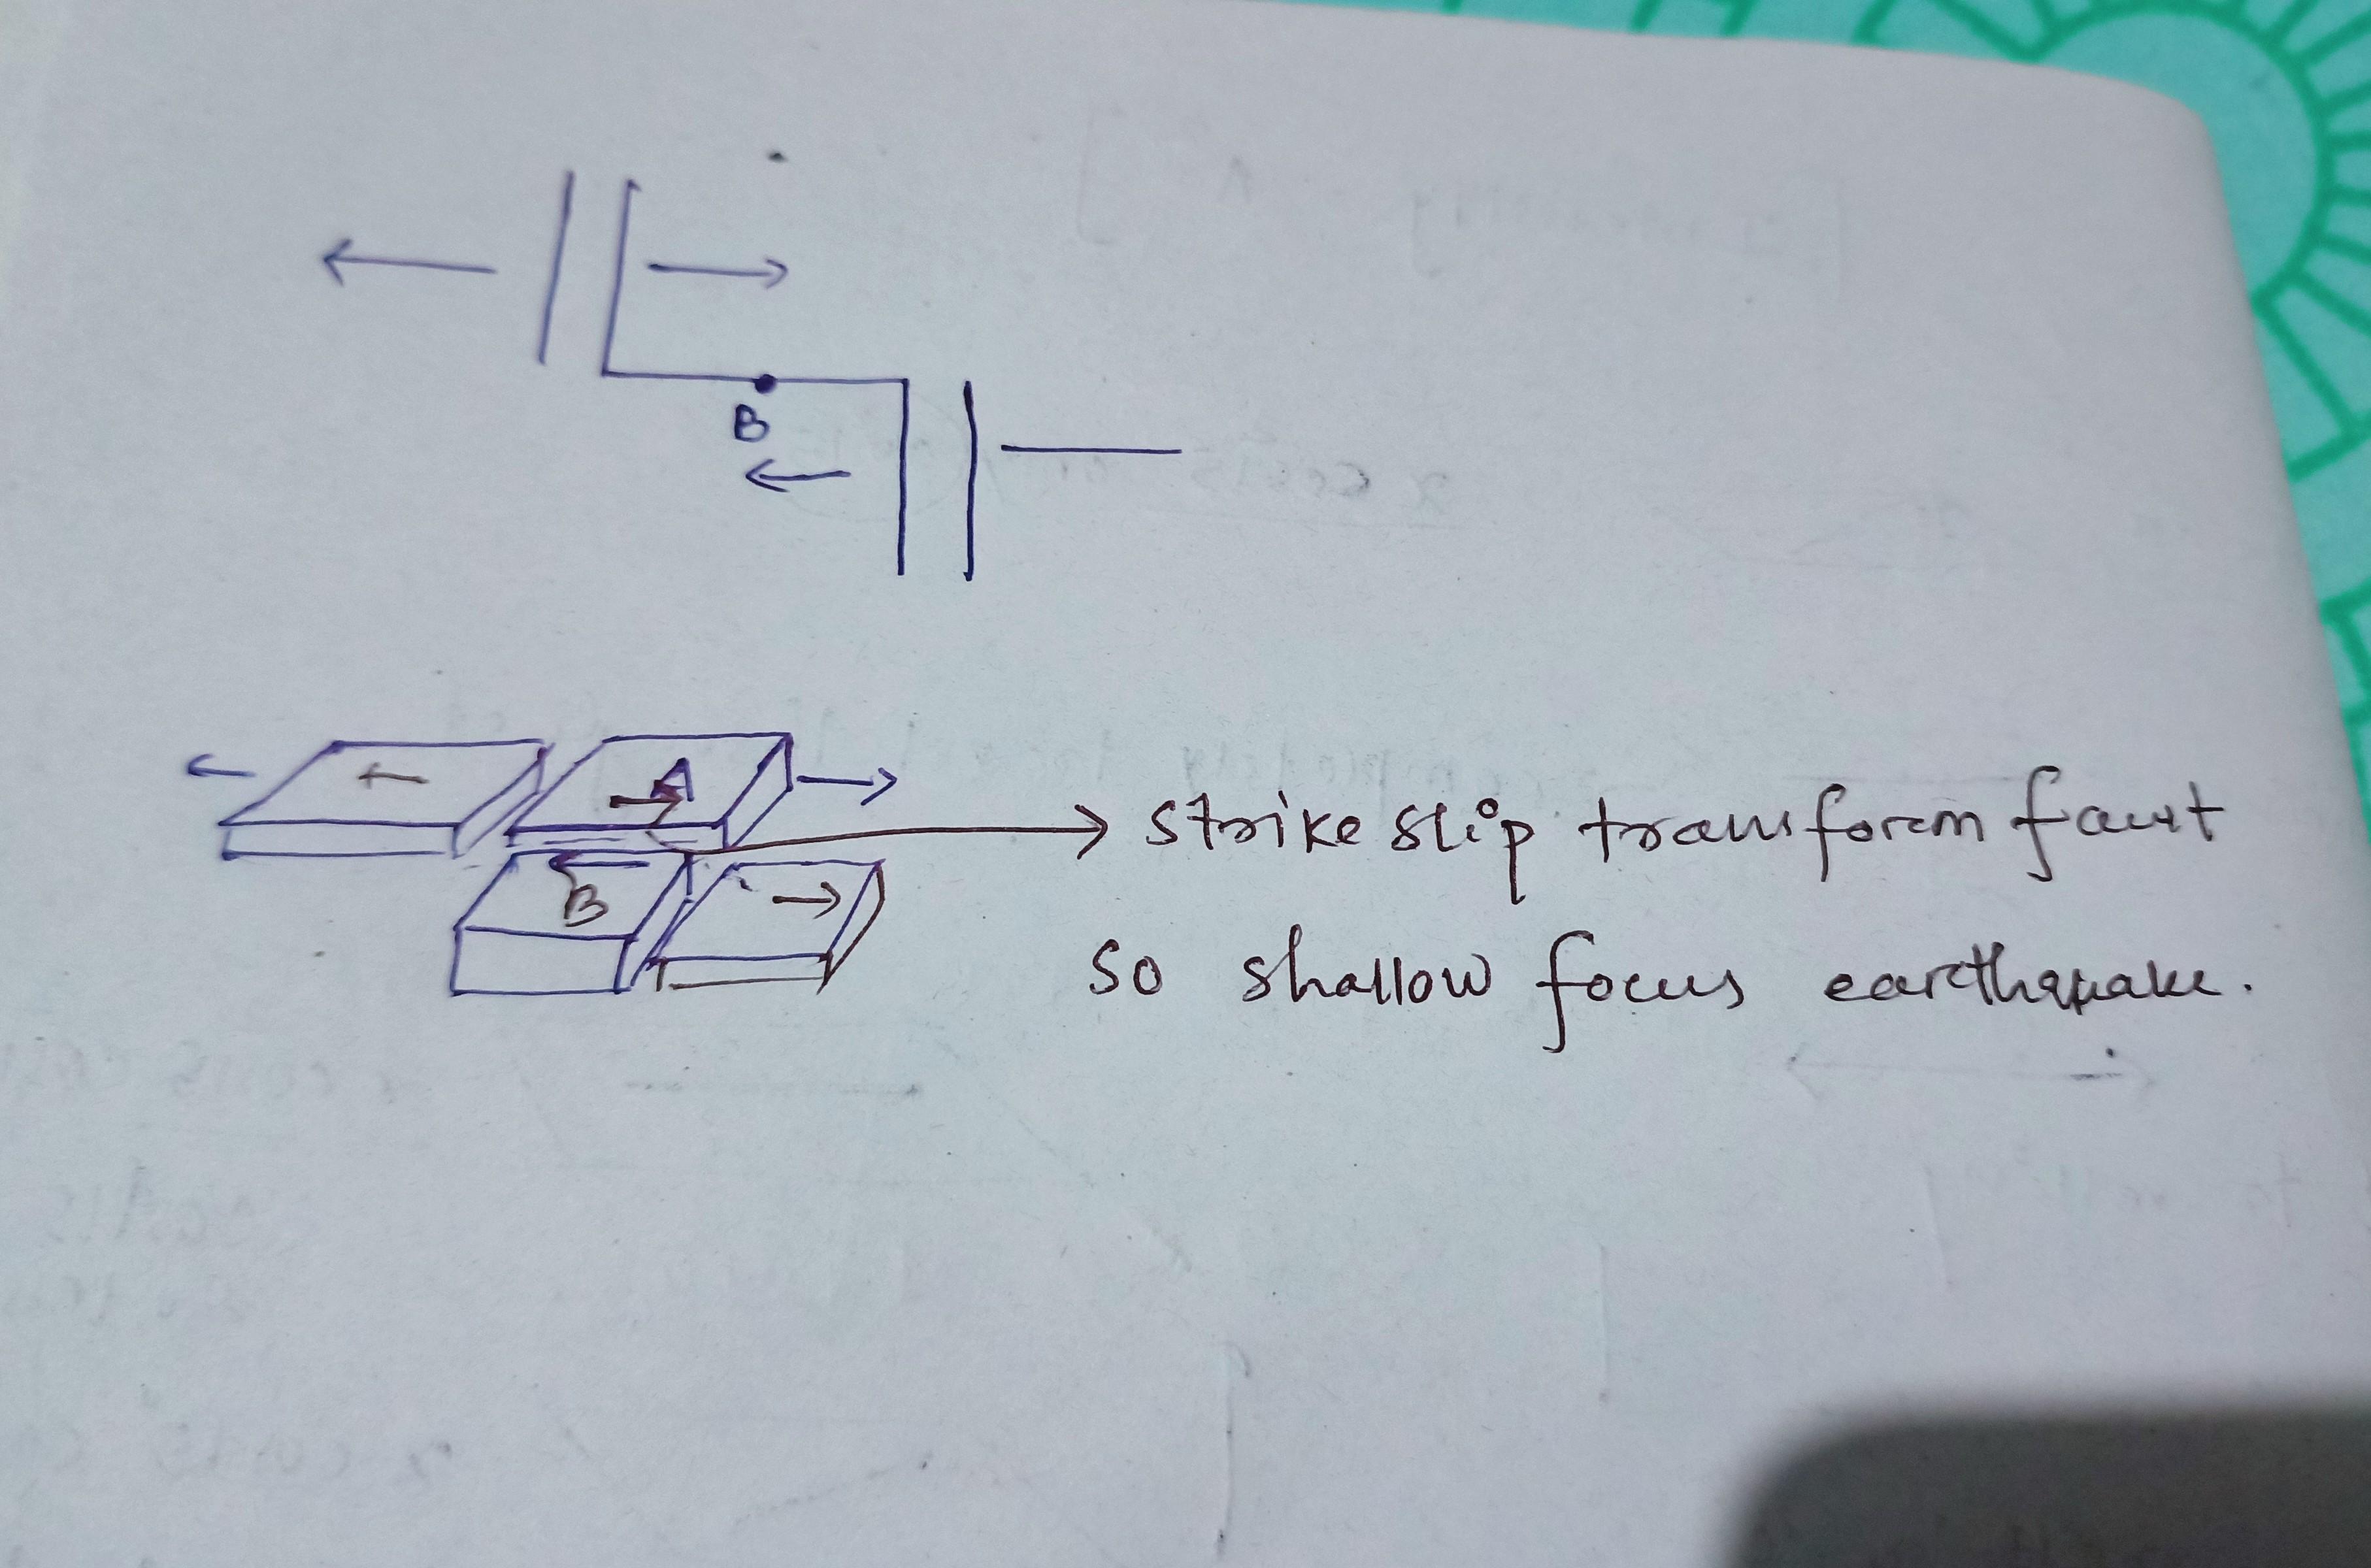 B
A
B
strike slip transform fault
so shallow focus earthquake.